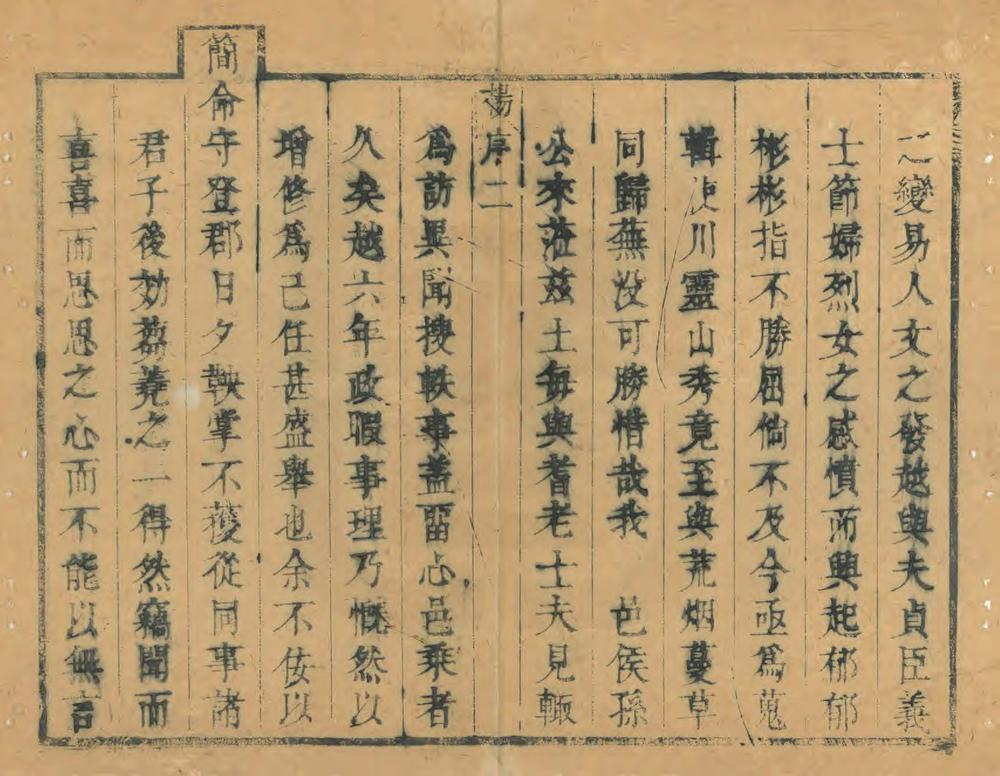 之變易人文之發越與夫貞臣義
士節婦烈女之感憤而興起郁郁
彬彬指不勝屈倘不及今亟爲蒐
輯使川靈山秀竟至與荒烟蔓草
同歸蕪没可勝惜哉我 邑侯孫
公來蒞茲土每與耆老士夫見輙
楊序二
爲訪異聞搜軼事蓋畱心邑乘者
久矣越六年政暇事理乃慨然以
增修爲己任甚盛舉也余不佞以
簡命守登郡日夕鞅掌不獲從同事諸
君子後効蒭蕘之一得然竊聞而
喜喜而思思之心而不能以無言